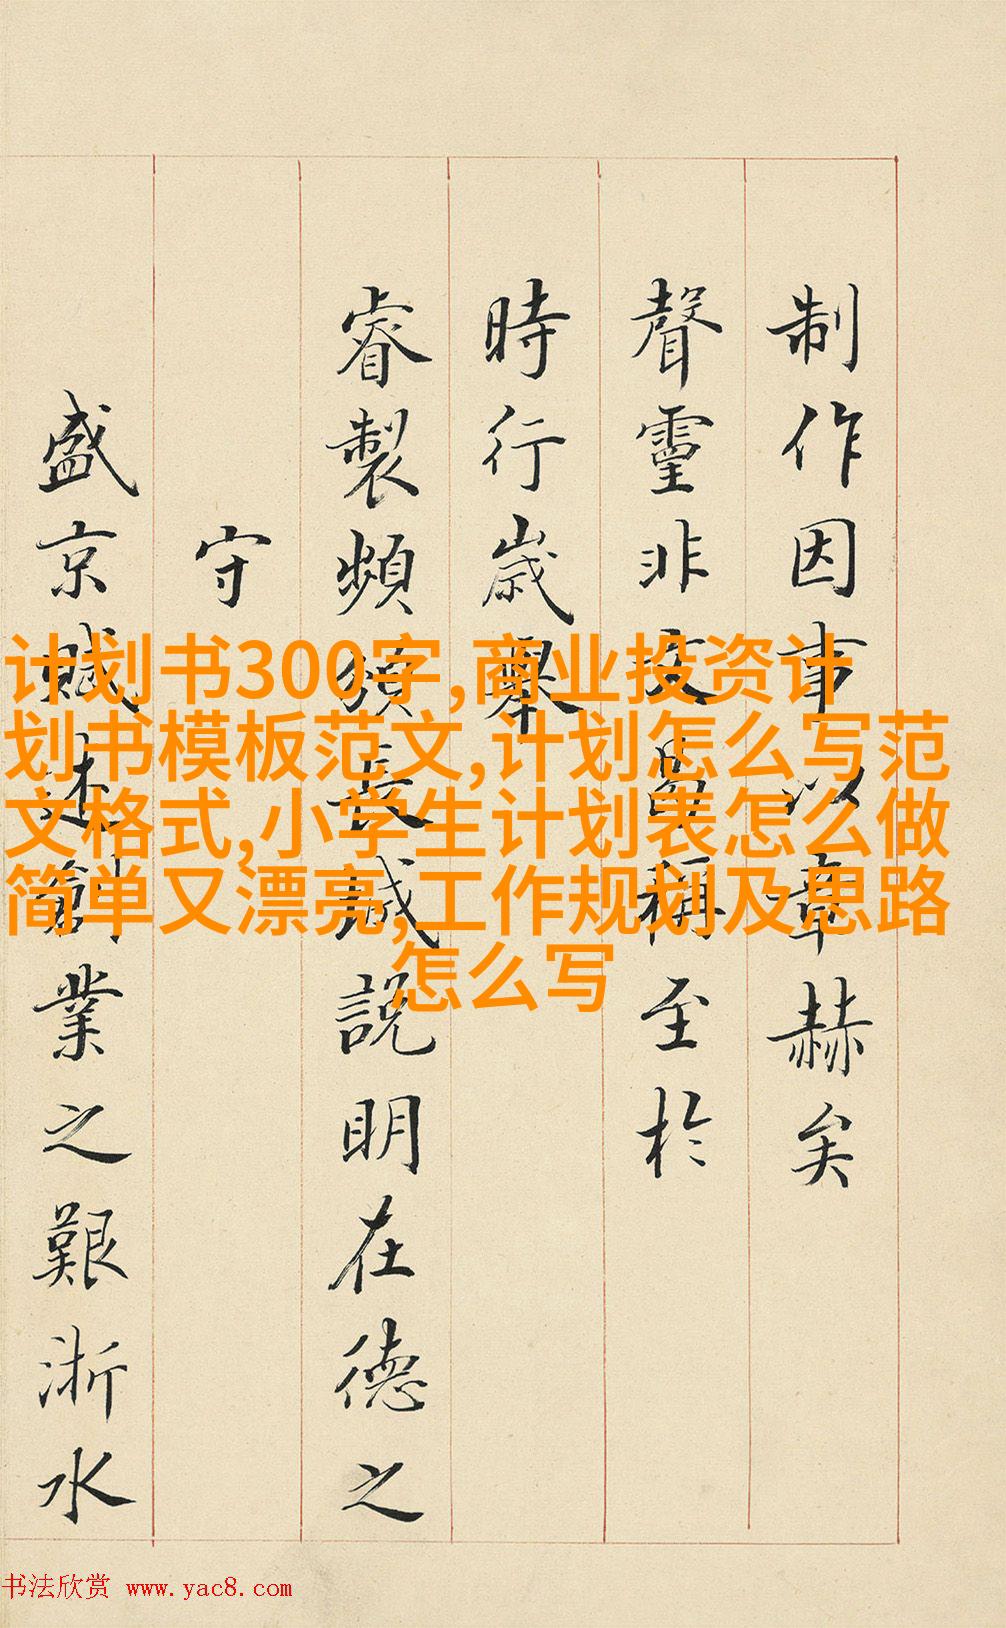 制作因事以章赫矣
聲靈非文曷稱至於
時行歲舉
睿製頻頒長說明在德之
守
盛京賦述創業之艱浙水
计划书300字,商业投资计
划书模板范文,计划怎么写范
文格式,小学生计划表怎么做
简单又漂亮,工作规划及思路
怎么写
书法欣赏 www.yac8.com